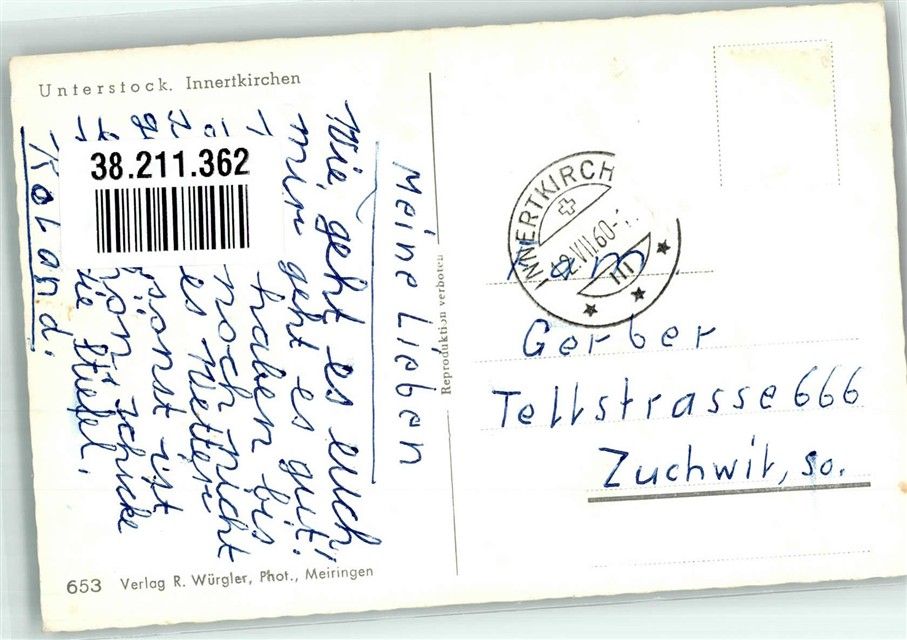 Unterstock. Innertkirchen
Meine Lieben
Wie geht es euch
mir geht es gut!
haben bis
noch nicht
es Wetter
sonst ist
schicke
die Stiefel.
Roland.
38.211.362
653 Verlag R. Würgler, Phot., Meiringen
Reproduktion verboten
INNERTKIRCH
VII.60
Fam
Gerber
Tellstrasse 666
Zuchwil, so.